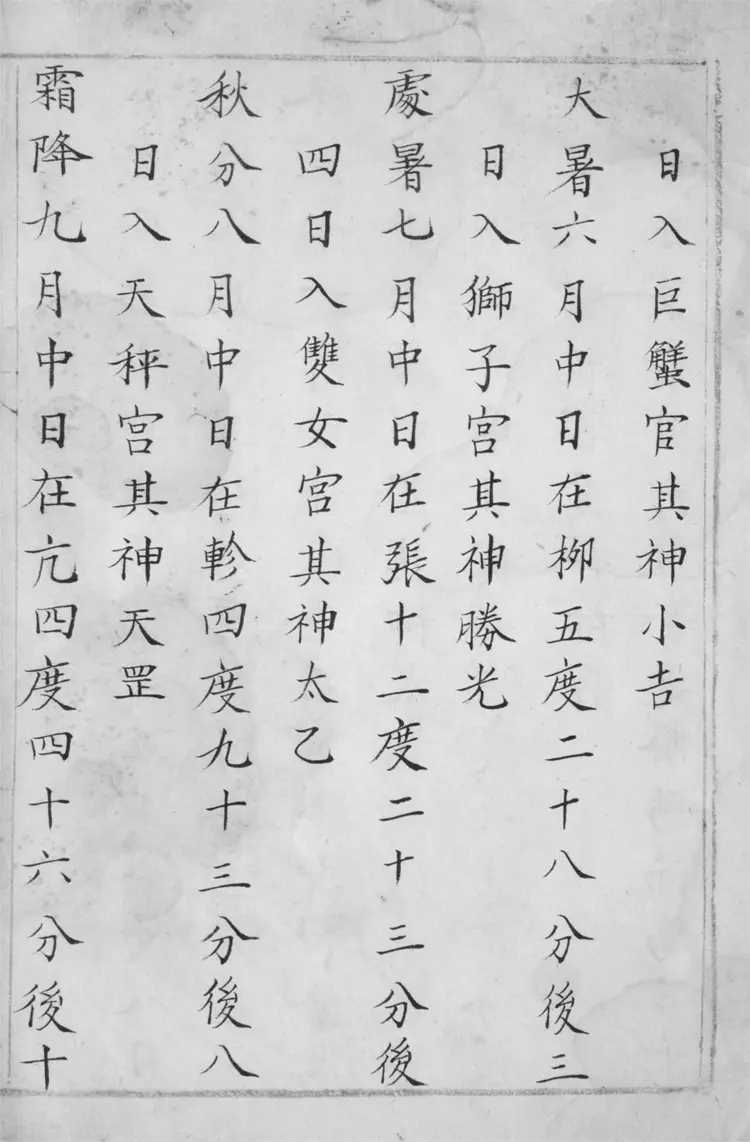 日入巨蟹官其神小吉
大暑六月中日在栁五度二十八分後三
日入獅子宮其神勝光
處暑七月中日在張十二度二十三分後
四日入雙女宮其神太乙
秋分八月中日在軫四度九十三分後八
日入天秤宮其神天罡
霜降九月中日在亢四度四十六分後十